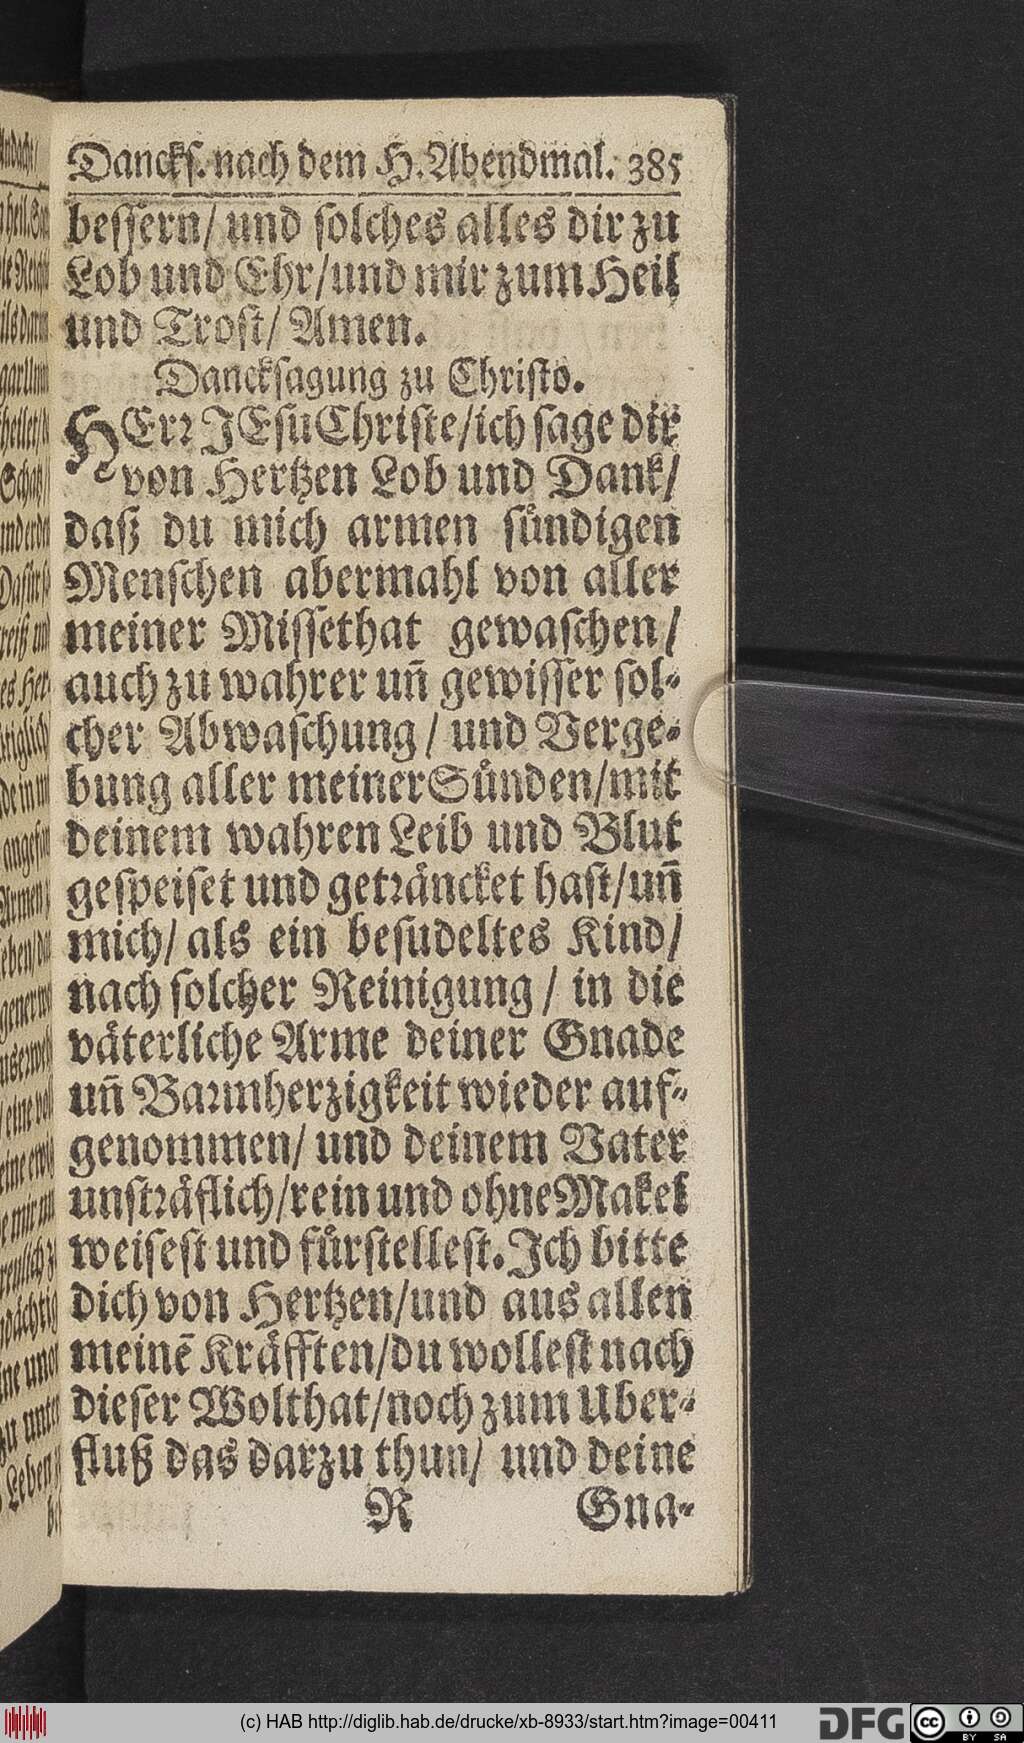 Dancks. nach dem H. Abendmal. 385
bessern/ und solches alles dir zu
Lob und Ehr/ und mir zum Heil
und Trost/ Amen.
Dancksagung zu Christo.
HErr JEsu Christe/ ich sage dir
von Hertzen Lob und Dank/
daß du mich armen sündigen
Menschen abermahl von aller
meiner Missethat gewaschen/
auch zu wahrer uñ gewisser sol-
cher Abwaschung/ und Verge-
bung aller meiner Sünden/ mit
deinem wahren Leib und Blut
gespeiset und geträncket hast/ uñ
mich/ als ein besudeltes Kind/
nach solcher Reinigung/ in die
väterliche Arme deiner Gnade
uñ Barmherzigkeit wieder auf-
genommen/ und deinem Vater
unsträflich/ rein und ohne Makel
weisest und fürstellest. Ich bitte
dich von Hertzen/ und aus allen
meinẽ Kräfften/ du wollest nach
dieser Wolthat/ noch zum Uber-
fluß das darzu thun/ und deine
R Gna-
(c) HAB http://diglib.hab.de/drucke/xb-8933/start.htm?image=00411
DFG
cc BY SA